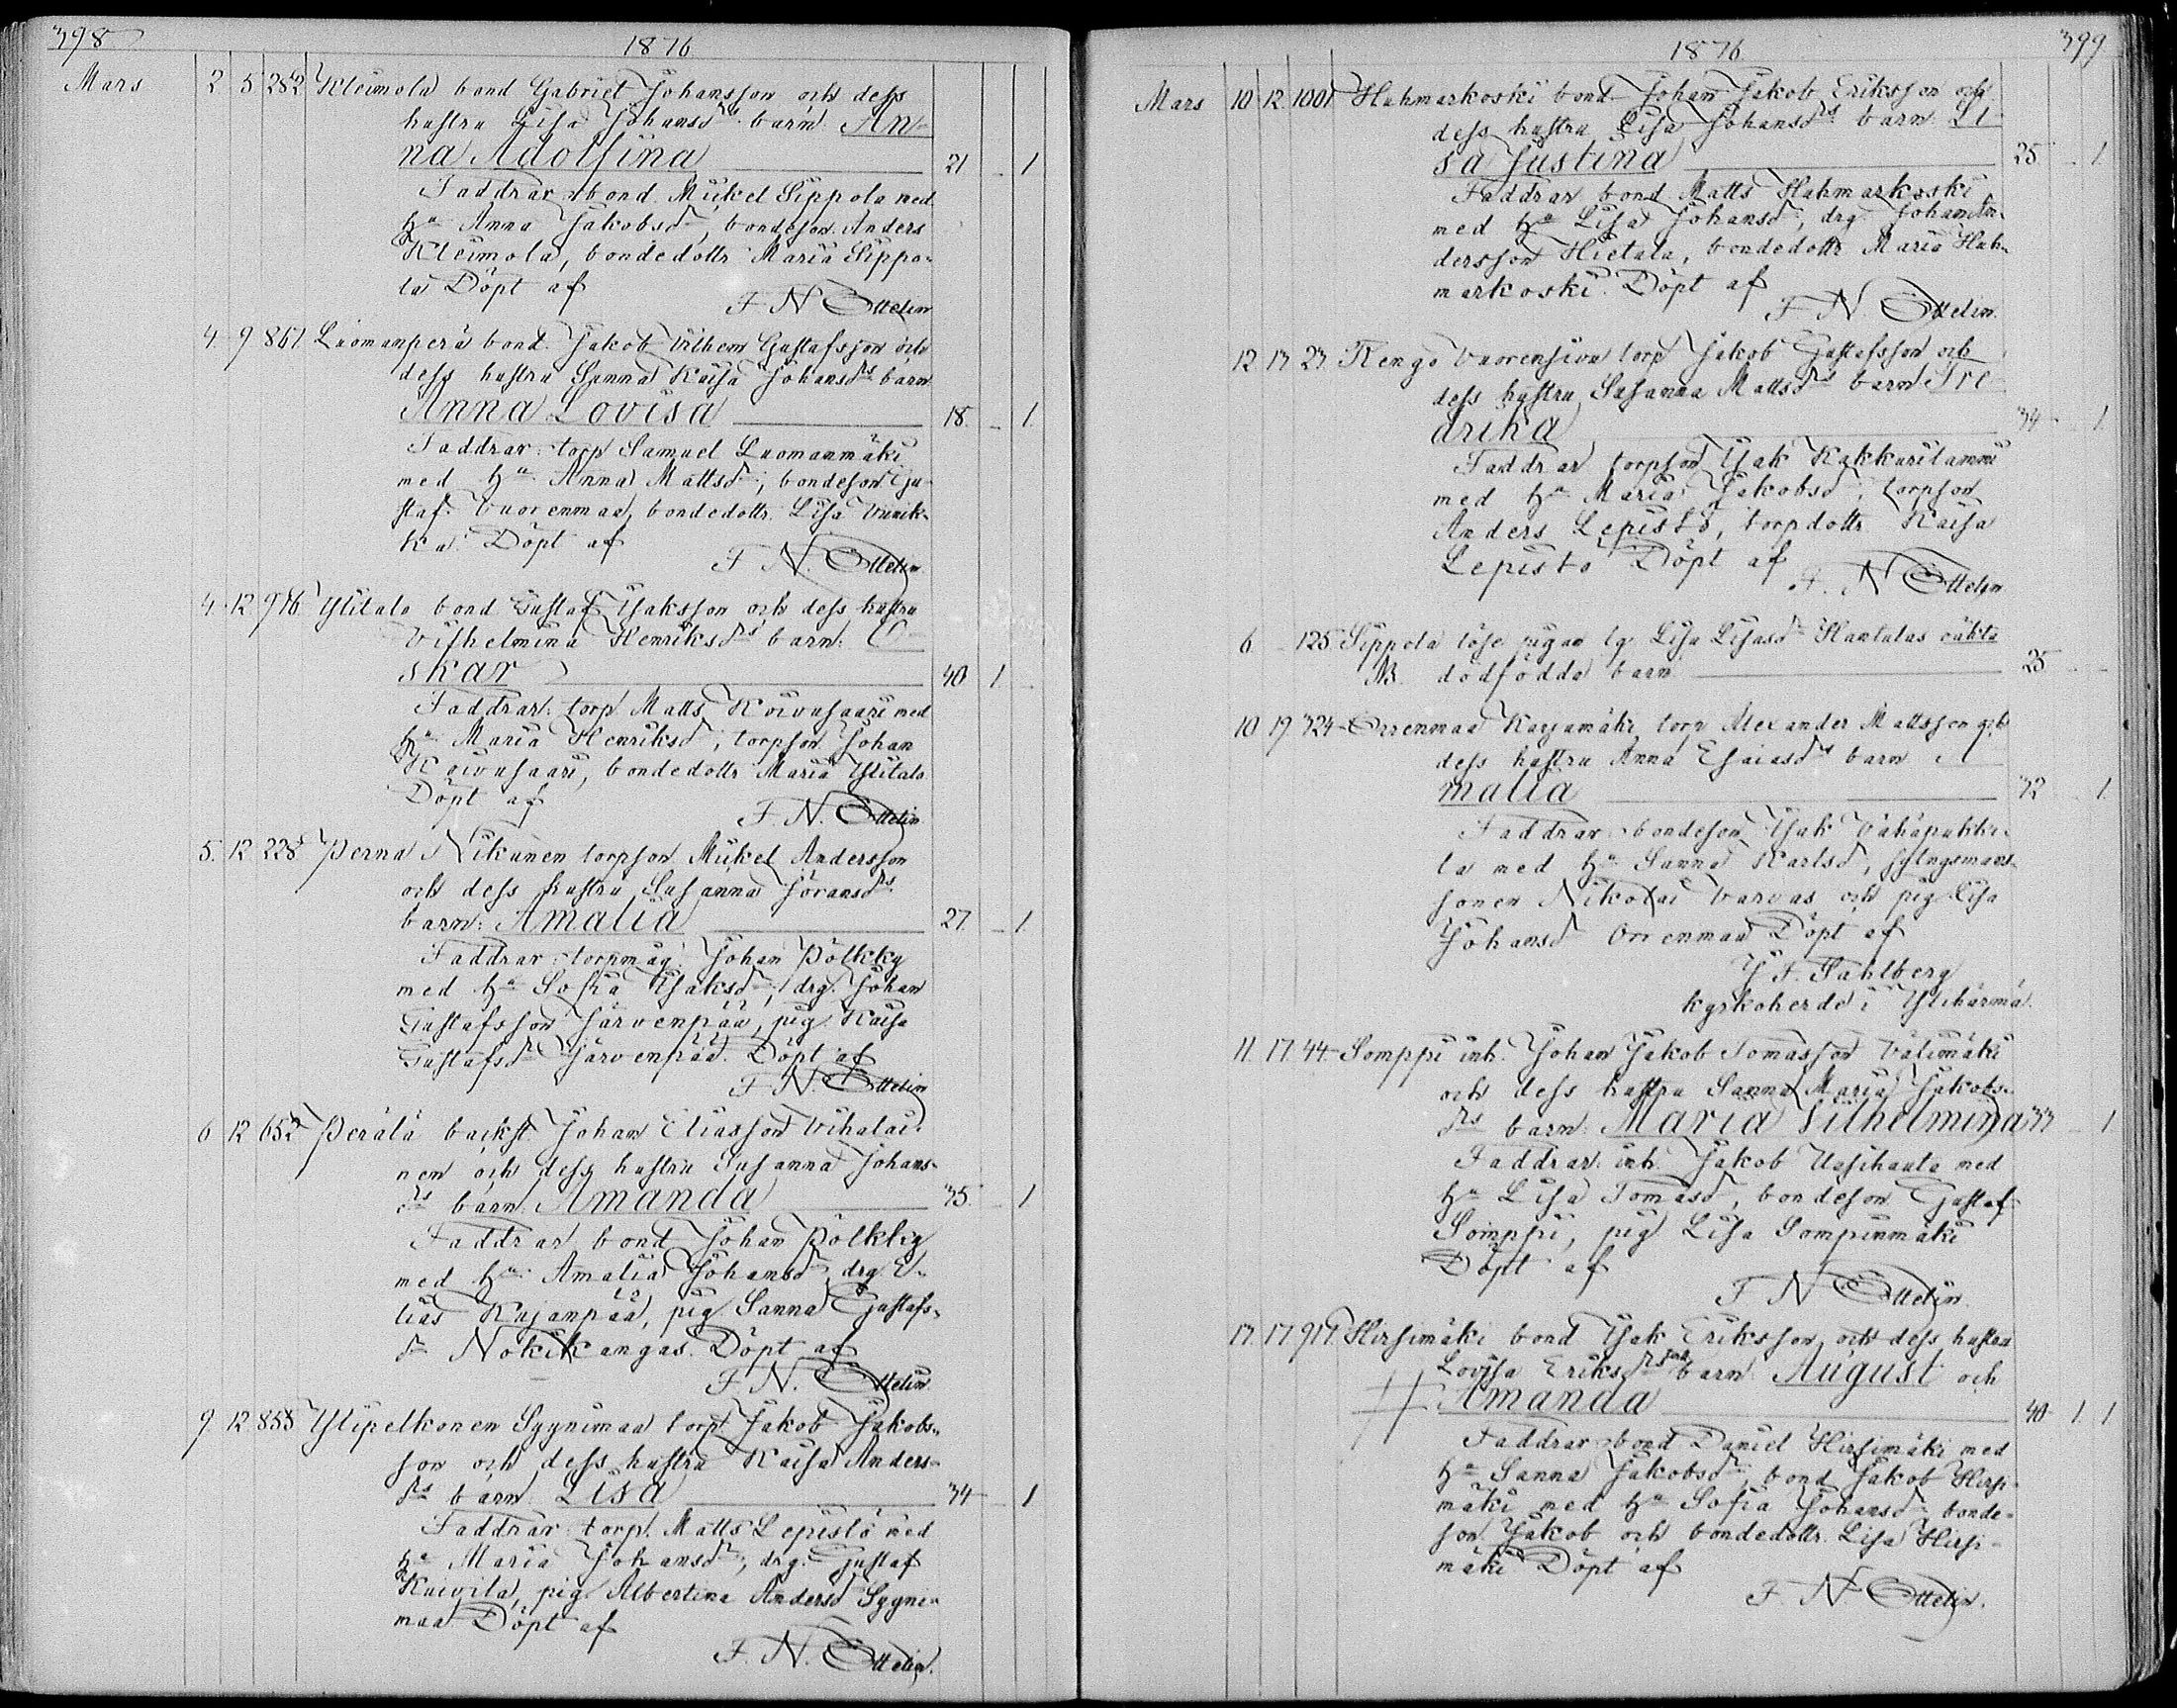 398
1876
Mars 2 5 282 Kleimola bond Gabriel Johansson och dess
hustru Lisa Johansdrs barn: An-
na Adolfina 21 - 1
Faddrar: bond. Mickel Sippola med
ha Anna Jakobsdr, bondeson Anders
Kleimola, bondedottr Maria Sippo-
la Döpt af
F N Ottelin
4 9 867 Luomanperä bond. Jakob Vilhem Gustafsson och
dess hustru Sanna Kaisa Johansdrs barn
Anna Lovisa 18. - 1.
Faddrar: torp Samuel Luomanmäki
med ha Anna Mattsdr, bondeson Gu-
staf Vuorenmaa, bondedottr. Lisa
ka. Döpt af
F N. Ottelin
4 12 976 Ylitalo bond Gustaf Isaksson och dess hustru
Vilhelmina Henriksdrs barn: O-
skar 40 1. -
Faddrar: torp. Matts Koivusaari med
ha Maria Henriksdr, torpson Johan
Koivusaari, bondedottr Maria Ylitalo
Döpt af
F. N. Ottelin
5. 12 228 Perna Nikunen torpson Mickel Andersson
och dess hustru Susanna Göransdrs
barn: Amalia 27 - 1
Faddrar: torpmåg: Johan Pölkky
med ha Sofia Isaksdr, drg. Johan
Gustafsson Järvenpää, pig Kaisa
Gustafsdr Järvenpää. Döpt af
F N. Ottelin
6 12 652 Perälä backst Johan Eliasson Vihalai-
nen och dess hustru Susanna Johans-
drs barn. Amanda 35. - 1
Faddrar bond Johan Pölkky
med ha Amalia Johansdr, drg E-
lias Kujanpää, pig Sanna Gustafs-
dr Nokikangas. Döpt af
F. N. Ottelin
9. 12 858 Ylipelkonen Sygnimaa torp. Jakob Jakobs-
son och dess hustru Kaisa Anders-
drs barn Lisa 34 - 1
Faddrar torp. Matts Lepistö med
ha Maria Johansdr, drg. Gustaf
Kuivila, pig. Albertina Andersdr Sygni-
maa Döpt af
F. N. Ottelin.
1876. 399.
Mars 10 12 1001 Hahmarkoski bond Johan Jakob Eriksson och
dess hustru Lisa Johansdrs barn Li-
sa Justina 25 - 1.
Faddrar bond Matts Hahmarkoski
med ha Lisa Johansdr, drg. Johan An-
dersson Hietala, bondedottr Maria Hah-
markoski. Döpt af
F N. Ottelin.
12 13 23 Rengo Vuorensivu torp Jakob Gustafsson och
dess hustru Susanna Mattsdrs barn Fre-
drika 34 - 1.
Faddrar torpson Isak Kakkurilammi
med ha Maria Jakobsdr, torpson
Anders Lepistö, torpdottr Kaisa
Lepistö Döpt af
F. N Ottelin
6 - 125 Sippola löse pigan lg Lisa Lisasdr Hantalas oäkta
NB. dödfödda barn 25 - -
10 19 324 Orrenmaa Karjamäki torp Alexander Mattsson och
dess hustru Anna Esaiasdrs barn A-
malia 32 - 1.
Faddrar: bondeson Isak Vähäpukki-
la med ha Sanna Karlsdr,
sonen Nikolai Varvas och pig Lisa
Johansdr Orrenmaa Döpt af
J F. Sahlberg
kyrkoherde i Ylihärmä.
11. 17. 44 Somppi inh. Johan Jakob Tomasson Välimäki
och dess hustru Sanna Maria Jakobs-
drs barn: Maria Vilhelmina 33 - 1
Faddrar: inh. Jakob Uusihauta med
ha Lisa Tomasdr, bondeson Gustaf
Somppi, pig Lisa Sompinmäki
Döpt af
F N Ottelin.
17. 17 917. Hirsimäki bond Isak Eriksson och dess hustru
Lovisa Eriksdrs barn: August och
Amanda 40 1. 1
Faddrar: bond Daniel Hirsimäki med
ha Sanna Jakobsdr, bond Jakob Hirsi-
mäki med ha Sofia Johansdr bonde-
son Jakob och bondedottr. Lisa Hirsi-
mäki Döpt af
F. N Ottelin.